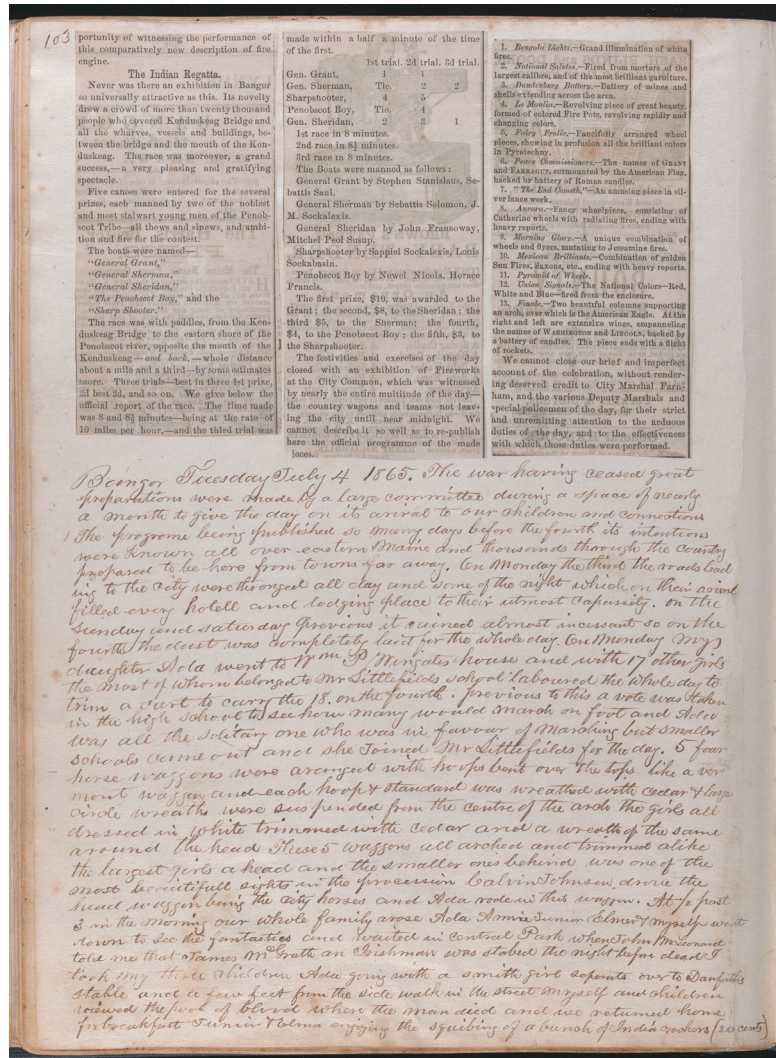 103
portunity of witnessing the performance of
this comparatively new description of fire
engine.
The Indian Regatta.
Never was there an exhibition in Bangor
so universally attractive as this. Its novelty
drew a crowd of more than twenty thousand
people who covered Kenduskeag Bridge and
all the wharves, vessels and buildings, be-
tween the bridge and the mouth of the Ken-
duskeag. The race was moreover, a grand
success,—a very pleasing and gratifying
spectacle.
Five canoes were entered for the several
prizes, each manned by two of the noblest
and most stalwart young men of the Penob-
scot Tribe—all thews and sinews, and ambi-
tion and fire for the contest.
The boats were named—
"General Grant,"
"General Sherman,"
"General Sheridan,"
"The Penobscot Boy," and the
"Sharp Shooter."
The race was with paddles, from the Ken-
duskeag Bridge to the eastern shore of the
Penobscot river, opposite the mouth of the
Kenduskeag—and back,—whole distance
about a mile and a third—by some estimates
more. Three trials—best in three 1st prize,
2d best 2d, and so on. We give below the
official report of the race. The time made
was 8 and 8½ minutes—being at the rate of
10 miles per hour,—and the third trial was
made within a half a minute of the time
of the first.
1st trial. 2d trial. 3d trial.
Gen. Grant, 1 1
Gen. Sherman, Tie. 2 2
Sharpshooter, 4 5
Penobscot Boy, Tie. 4
Gen. Sheridan, 2 3 1
1st race in 8 minutes.
2nd race in 8½ minutes.
3rd race in 8 minutes.
The Boats were manned as follows:
General Grant by Stephen Stanislaus, Se-
battis Saul.
General Sherman by Sebattis Solomon, J.
M. Sockalexis.
General Sheridan by John Fransoway,
Mitchel Peol Susup.
Sharpshooter by Sappiel Sockalexis, Louis
Sockabasin.
Penobscot Boy by Newel Nicola, Horace
Francis.
The first prize, $10, was awarded to the
Grant; the second, $8, to the Sheridan; the
third $5, to the Sherman; the fourth,
$4, to the Penobscot Boy; the fifth, $3, to
the Sharpshooter.
The festivities and exercises of the day
closed with an exhibition of Fireworks
at the City Common, which was witnessed
by nearly the entire multitude of the day—
the country wagons and teams not leav-
ing the city until near midnight. We
cannot describe it so well as to re-publish
here the official programme of the made
ieces.
1. Bengola Lights.—Grand illumination of white
fires.
2. National Salutes.—Fired from mortars of the
largest calibre, and of the most brilliant garniture.
3. Dundenberg Battery.—Battery of mines and
shells extending across the area.
4. Le Moulin.—Revolving piece of great beauty,
formed of colored Fire Pots, revolving rapidly and
changing colors.
5. Fairy Frolic.—Fancifully arranged wheel
pieces, showing in profusion all the brilliant colors
in Pyrotechny.
6. Peace Commissioners.—The names of GRANT
and FARRAGUT, surmounted by the American Flag,
backed by battery of Roman candles.
7. "The End Cometh."—An amusing piece in sil-
ver lance work.
8. Aurora.—Fancy wheelpiece, consisting of
Catherine wheels with radiating fires, ending with
heavy reports.
9. Morning Glory.—A unique combination of
wheels and flyers, mutating to Jessamine fires.
10. Mexican Brilliants.—Combination of golden
Sun Fires, Saxons, etc., ending with heavy reports.
11. Pyramid of Wheels.
12. Union Signals.—The National Colors—Red,
White and Blue—fired from the enclosure.
13. Finale.—Two beautiful columns supporting
an arch, over which is the American Eagle. At the
right and left are extensive wings, empanneling
the names of WASHINGTON and LINCOLN, backed by
a battery of candles. The piece ends with a flight
of rockets.
We cannot close our brief and imperfect
account of the celebration, without render-
ing deserved credit to City Marshal Farn-
ham, and the various Deputy Marshals and
special policemen of the day, for their strict
and unremitting attention to the arduous
duties of the day, and to the effectiveness
with which those duties were performed.
Bangor Tuesday July 4 1865. The war having ceased great
preparations were made by a large committee during a space of nearly
a month to give the day on its arival to our children and connections
The programe being published so many days before the fourth its intentions
were known all over eastern Maine and thousands through the country
prepared to be here from towns far away. On Monday the third the roads lead
ing to the city were thronged all day and some of the night which on their arival
filled every hotell and lodging place to their utmost capassity. on the
Sunday and saturday previous it rained almost incessant so on the
fourth the dust was completely laid for the whole day. On Monday My
daughter Ada went to Wm P Wingates house and with 17 other girls
the most of whom belonged to Mr Littlefields school laboured the whole day to
trim a cart to carry the 18. on the fourth. previous to this a vote was taken
in the high school to see how many would march on foot and Ada
was all the solitary one who was in favour of Marching but smaller
schools came out and she Joined Mr Littlefields for the day. 5 four
horse waggons were aranged with hoops bent over the tops like a ver
mont waggon and each hoop & standard was wreathed with cedar & large
circle wreaths were suspended from the centre of the archs the girls all
dressed in white trimmed with cedar and a wreath of the same
around the head These 5 waggons all arched and trimmed alike
the largest girls ahead and the smaller ones behind was one of the
most beautifull sights in the procession Calvin Johnson drove the
head waggon being the city horses and Ada rode in this waggon. At ½ past
3 in the morning our whole family arose Ada Annie Junior Elmer & myself went
down to see the fantastics and waited in Central Park when John McLeonard
told me that James McGrath an Irishman was stabed the night before dead I
took my three children Ada going with a smith girl seperate over to
stable and a few feet from the side walk in the street myself and children
viewed the pool of blood where the man died and we returned home
for breakfast Junior & Elmer enjoying the squibing of a bunch of India crackers (20 cents)